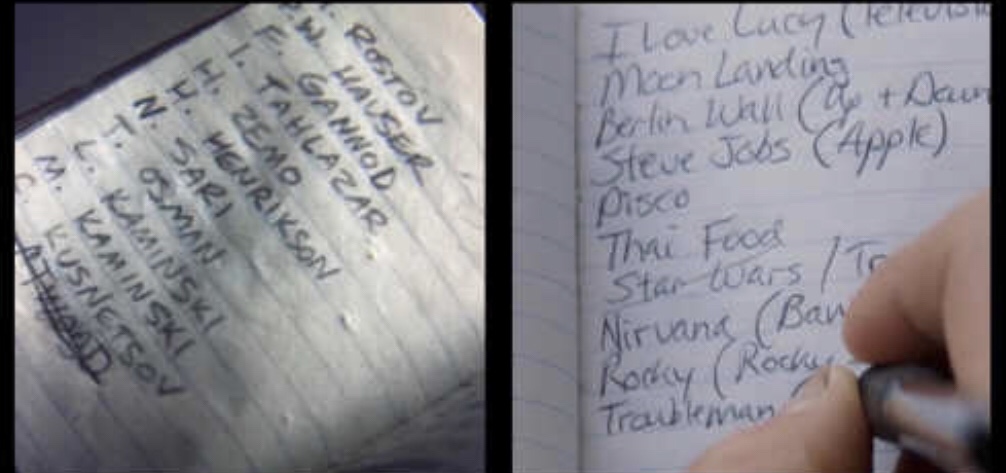 ROSTOV
W. HAUSER
F. GANNOD
I. TAHLAZAR
H. ZEMO
HENRIKSON
N. SARI
T. OSMAN
L. KAMINSKI
M. KAMINSKI
KUSNETSOV
ATWOOD
I Love Lucy (Televisi
Moon Landing
Berlin Wall (Up + Down
Steve Jobs (Apple)
Disco
Thai Food
Star Wars / Tr
Nirvana (Ban
Rocky (Rocky
Troubleman (